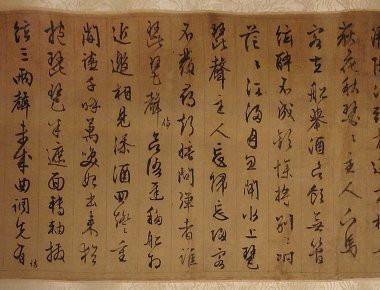 荻花秋瑟〻主人下馬
客在船舉酒欲飲無管
絃醉不成歡慘將別〻時
茫〻江浸月忽聞水上琵
琶聲主人忘歸客
不發尋聲暗問彈者誰
琵琶聲停欲語遲移船相
近邀相見添酒回燈重
開讌千呼萬喚始出來猶
抱琵琶半遮面轉軸撥
絃三兩聲未成曲調先有情